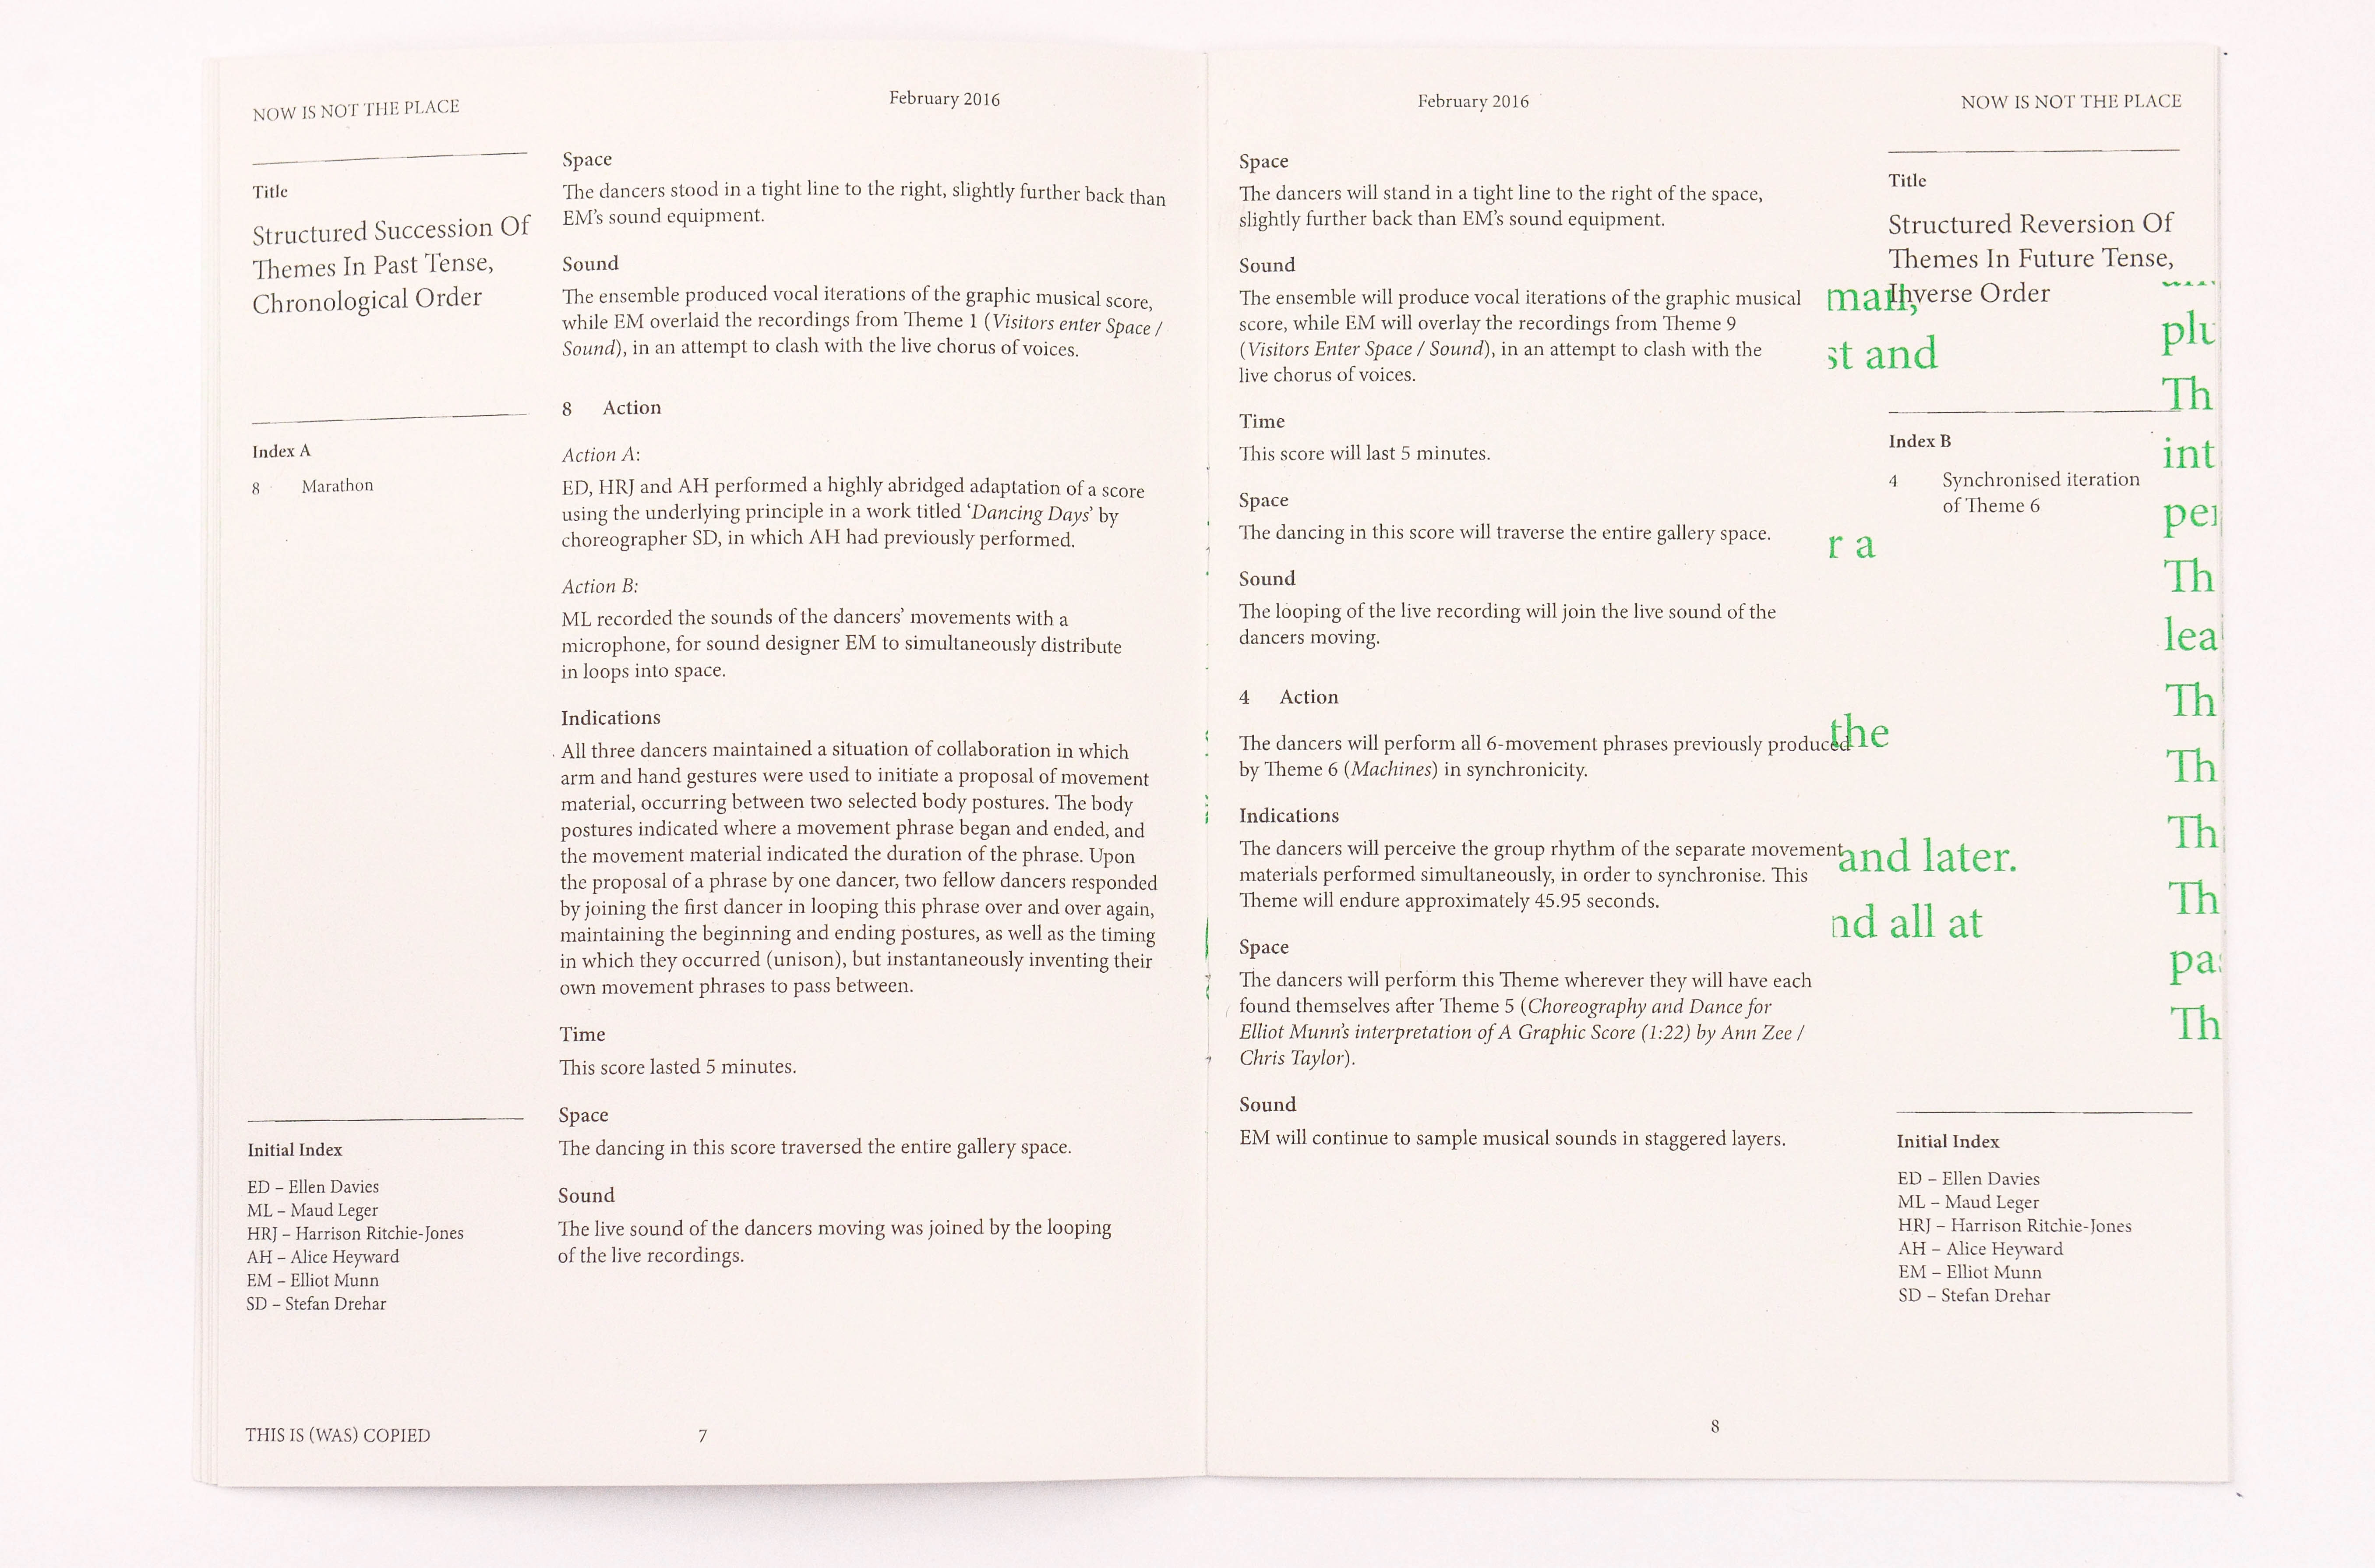 NOW IS NOT THE PLACE
February 2016
Title
Structured Succession Of
Themes In Past Tense,
Chronological Order
Index A
8 Marathon
Initial Index
ED – Ellen Davies
ML – Maud Leger
HRJ – Harrison Ritchie-Jones
AH – Alice Heyward
EM – Elliot Munn
SD – Stefan Drehar
THIS IS (WAS) COPIED
Space
The dancers stood in a tight line to the right, slightly further back than
EM’s sound equipment.
Sound
The ensemble produced vocal iterations of the graphic musical score,
while EM overlaid the recordings from Theme 1 (Visitors enter Space /
Sound), in an attempt to clash with the live chorus of voices.
8 Action
Action A:
ED, HRJ and AH performed a highly abridged adaptation of a score
using the underlying principle in a work titled ‘Dancing Days’ by
choreographer SD, in which AH had previously performed.
Action B:
ML recorded the sounds of the dancers’ movements with a
microphone, for sound designer EM to simultaneously distribute
in loops into space.
Indications
All three dancers maintained a situation of collaboration in which
arm and hand gestures were used to initiate a proposal of movement
material, occurring between two selected body postures. The body
postures indicated where a movement phrase began and ended, and
the movement material indicated the duration of the phrase. Upon
the proposal of a phrase by one dancer, two fellow dancers responded
by joining the first dancer in looping this phrase over and over again,
maintaining the beginning and ending postures, as well as the timing
in which they occurred (unison), but instantaneously inventing their
own movement phrases to pass between.
Time
This score lasted 5 minutes.
Space
The dancing in this score traversed the entire gallery space.
Sound
The live sound of the dancers moving was joined by the looping
of the live recordings.
7
February 2016
NOW IS NOT THE PLACE
Space
The dancers will stand in a tight line to the right of the space,
slightly further back than EM’s sound equipment.
Sound
The ensemble will produce vocal iterations of the graphic musical
score, while EM will overlay the recordings from Theme 9
(Visitors Enter Space / Sound), in an attempt to clash with the
live chorus of voices.
Time
This score will last 5 minutes.
Space
The dancing in this score will traverse the entire gallery space.
Sound
The looping of the live recording will join the live sound of the
dancers moving.
4 Action
The dancers will perform all 6-movement phrases previously produced
by Theme 6 (Machines) in synchronicity.
Indications
The dancers will perceive the group rhythm of the separate movement
materials performed simultaneously, in order to synchronise. This
Theme will endure approximately 45.95 seconds.
Space
The dancers will perform this Theme wherever they will have each
found themselves after Theme 5 (Choreography and Dance for
Elliot Munn’s interpretation of A Graphic Score (1:22) by Ann Zee /
Chris Taylor).
Sound
EM will continue to sample musical sounds in staggered layers.
8
Title
Structured Reversion Of
Themes In Future Tense,
Inverse Order
Index B
4 Synchronised iteration
of Theme 6
Initial Index
ED – Ellen Davies
ML – Maud Leger
HRJ – Harrison Ritchie-Jones
AH – Alice Heyward
EM – Elliot Munn
SD – Stefan Drehar
st and
r a
the
and later.
nd all at
Th
int
Th
lea
Th
Th
Th
Th
Th